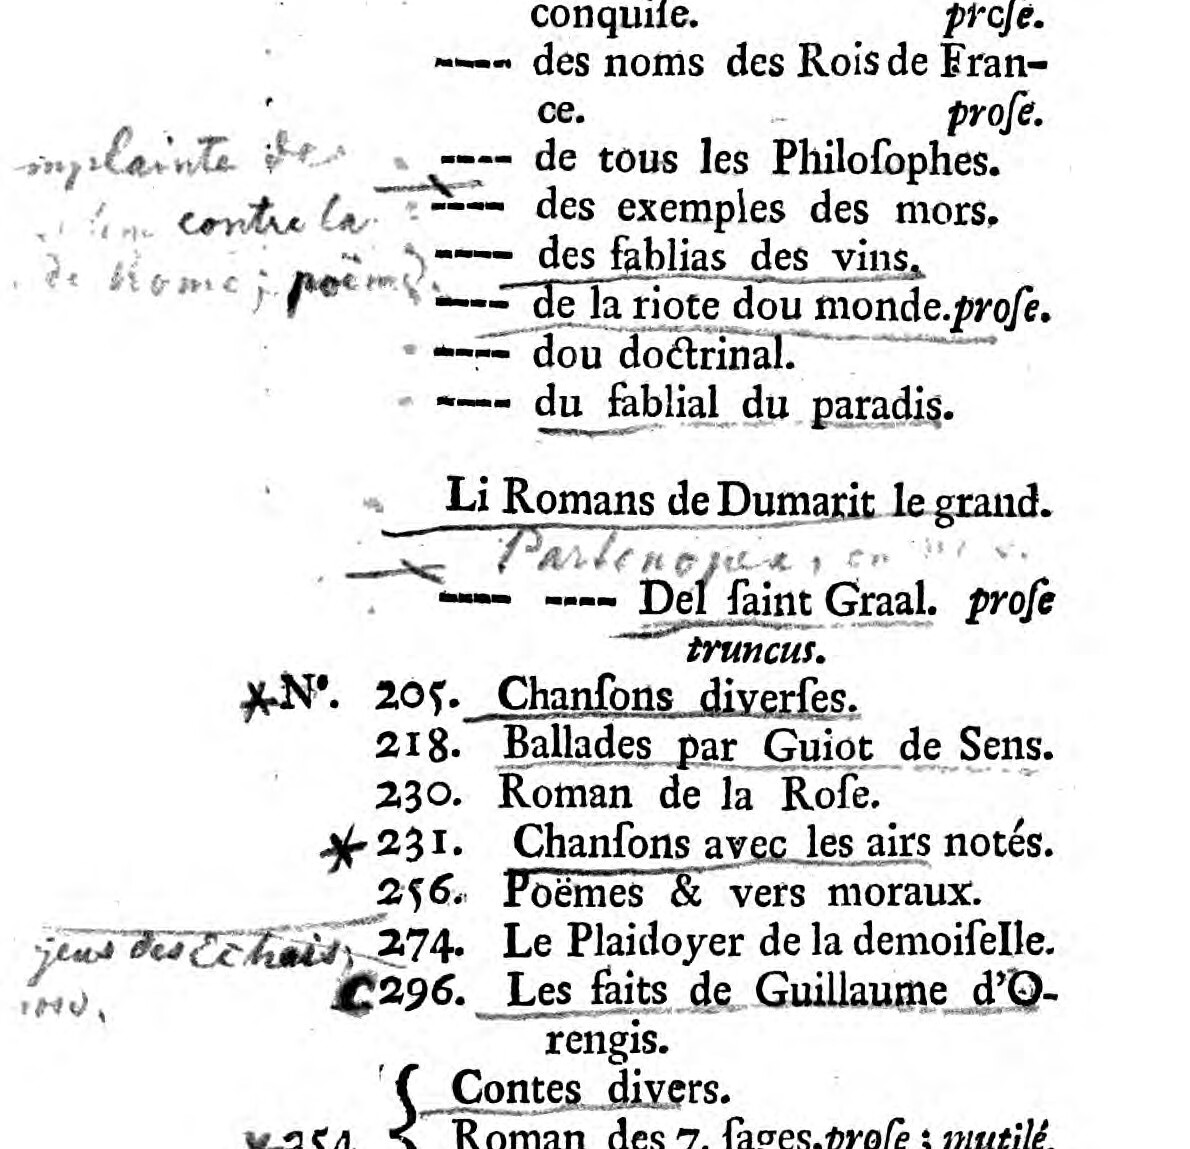 conquiſe. proſe.
---- des noms des Rois de Fran-
ce. proſe.
mplainte des
---- de tous les Philoſophes.
---- des exemples des mors.
contre la
---- des fablias des vins.
de Rome; poëme
---- de la riote dou monde. proſe.
---- dou doctrinal.
---- du fablial du paradis.
Li Romans de Dumarit le grand.
Partenopex, en
---- ---- Del ſaint Graal. proſe
truncus.
*N°. 205. Chanſons diverſes.
218. Ballades par Guiot de Sens.
230. Roman de la Roſe.
*231. Chanſons avec les airs notés.
256. Poëmes & vers moraux.
jeus des Echais, 274. Le Plaidoyer de la demoiſelle.
C 296. Les faits de Guillaume d'O-
rengis.
Contes divers.
254. Roman des 7. ſages. proſe ; mutilé.